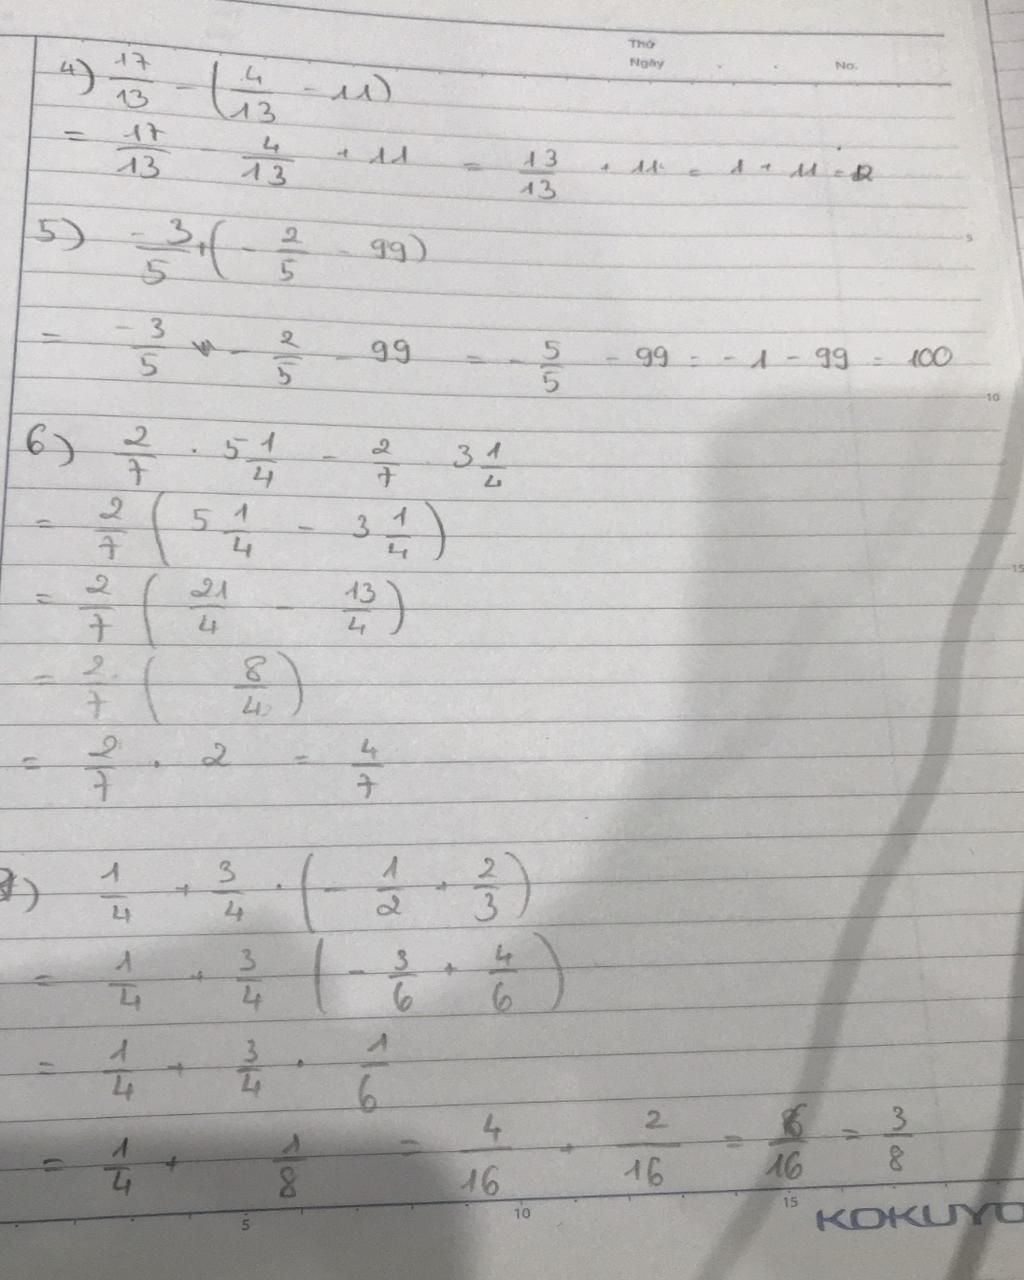 Thứ
Ngày . . No.
4) 17/13 - (4/13 - 11)
= 17/13 - 4/13 + 11 = 13/13 + 11 = 1 + 11 = 12
5) -3/5 + (- 2/5 - 99)
5
= -3/5 - 2/5 - 99 = - 5/5 - 99 = - 1 - 99 = 100
10
6) 2/7 . 5 1/4 - 2/7 . 3 1/4
= 2/7 (5 1/4 - 3 1/4)
15
= 2/7 (21/4 - 13/4)
= 2/7 (8/4)
= 2/7 . 2 = 4/7
1/4 + 3/4 . (- 1/2 + 2/3)
= 1/4 + 3/4 (- 3/6 + 4/6)
= 1/4 + 3/4 . 1/6
= 1/4 + 1/8 = 4/16 + 2/16 = 6/16 = 3/8
5 10 15
KOKUYO